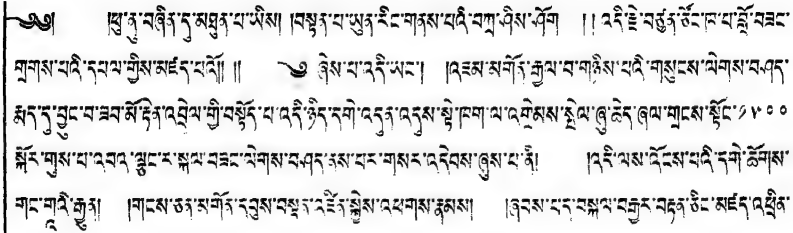 ༄༅། །ཕུ་ནུ་བཞིན་དུ་མཐུན་པ་ཡིས། །བསྟན་པ་ཡུན་རིང་གནས་པའི་བཀྲ་ཤིས་ཤོག །།འདི་རྗེ་བཙུན་ཙོང་ཁ་པ་བློ་བཟང་
གྲགས་པའི་དཔལ་གྱིས་མཛད་པའོ།། །། ༄ ཞེས་པ་འདི་ཡང་། །འཇམ་མགོན་རྒྱལ་བ་གཉིས་པའི་གསུངས་ལེགས་བཤད་
རྨད་དུ་བྱུང་བ་ཟབ་མོ་རྟེན་འབྲེལ་གྱི་བསྟོད་པ་འདི་ཉིད་དགེ་འདུན་འདུས་སྡེ་ཁག་ལ་འགྲེམས་སྤེལ་ཞུ་ཆེད་ཞལ་གྲངས་སྟོང་༡༥༠༠
སྐོར་གུས་པ་འབའ་ལྕུང་ར་སྐལ་བཟང་ལེགས་བཤད་ནས་པར་གསར་འདེབས་ཞུས་པ་ནི། །འདི་ལས་འོངས་པའི་དགེ་ཚོགས་
གང་གཱའི་རྒྱུན། །གངས་ཅན་མགོན་དབུས་བསྟན་འཛིན་སྐྱེས་འཕགས་རྣམས། །ཞབས་པད་བསྐལ་བརྒྱར་བརྟན་ཅིང་མཛད་འཕྲིན་